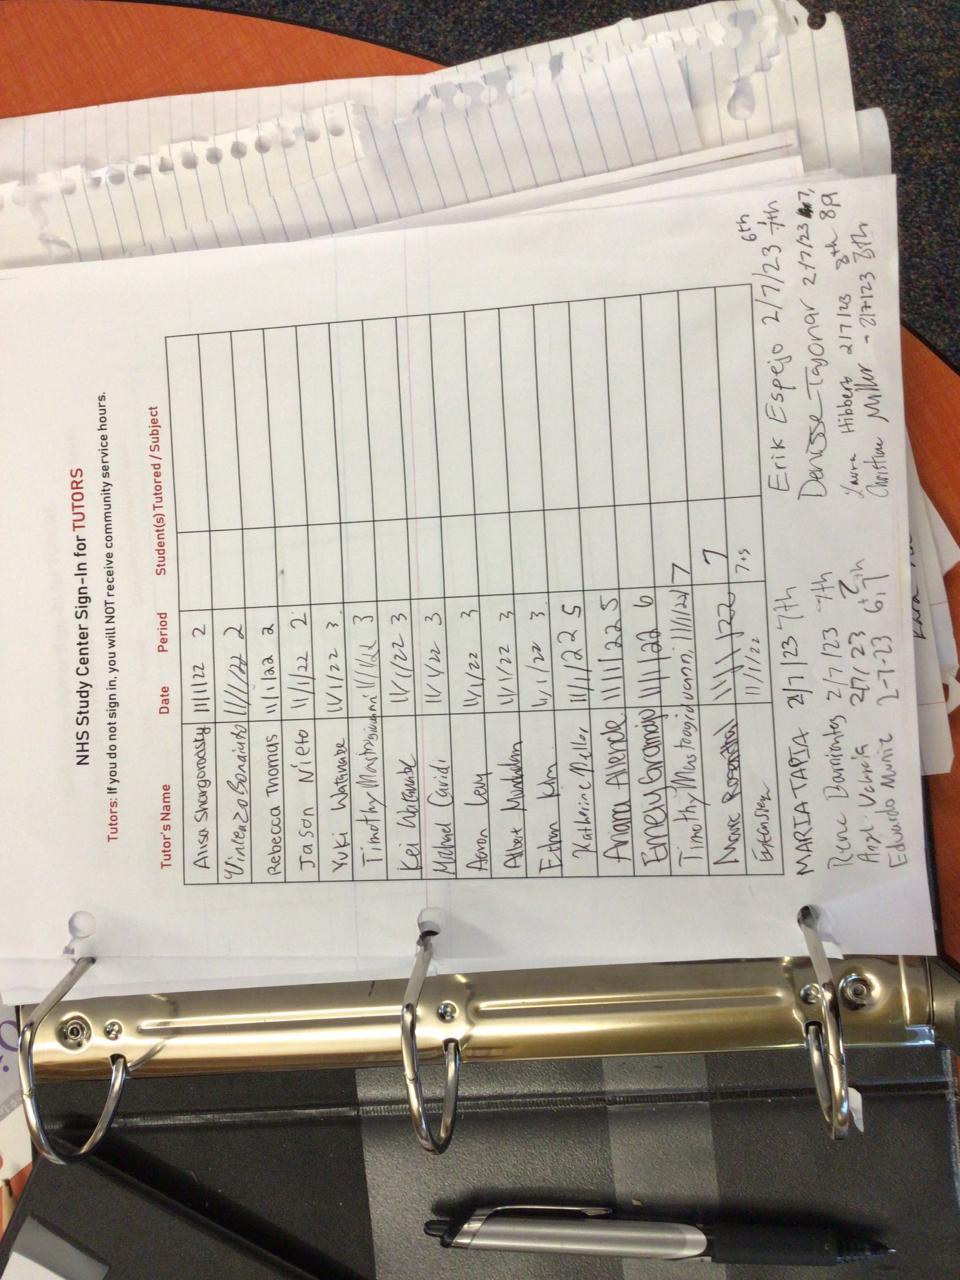 NHS Study Center Sign-In for TUTORS
Tutors: If you do not sign in, you will NOT receive community service hours.
Tutor's Name Date Period Student(s) Tutored / Subject
Alisa Shargorodsky 11/1/22 2
Vincenzo 11/1/22 2
Rebecca Thomas 11/1/22 2
Jason Nieto 11/1/22 2
Yuki Watanabe 11/1/22 3
Timothy Mastrogiovanni 11/1/22 3
Kei Watanabe 11/1/22 3
Michael 11/1/22 3
Aaron Levy 11/1/22 3
11/1/22 3
Ethan Kim 11/1/22 3
Katherine 11/1/22 5
Anama Allende 11/1/22 5
Emely Gramajo 11/1/22 6
Timothy Mastrogiovanni 11/1/22 7
Marc Rosenthal 11/1/22 7
Extension 11/1/22 7+8
MARIA TAPIA 2/7/23 7th
Erik Espejo 2/7/23 6th 7th
Rene Barrientos 2/7/23 7th
Denisse Tagonar 2/7/23 7,
2/7/23 7th
Laura Hibbert 2/7/23 8th 8P
Eduardo Muniz 2-7-23 6,7
Christine Miller - 2/7/23 8th